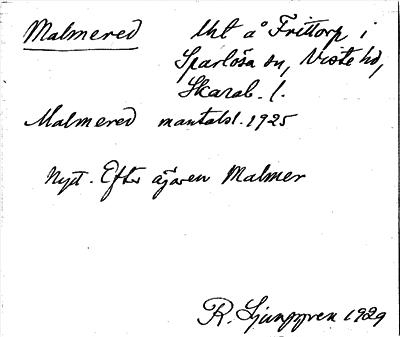 Malmered Uht å Frittorp i
Sparlösa sn, Viste hd,
Skarab. l.
Malmered mantalsl. 1925
Nytt. Efter ägaren Malmer
R. Ljunggren 1929